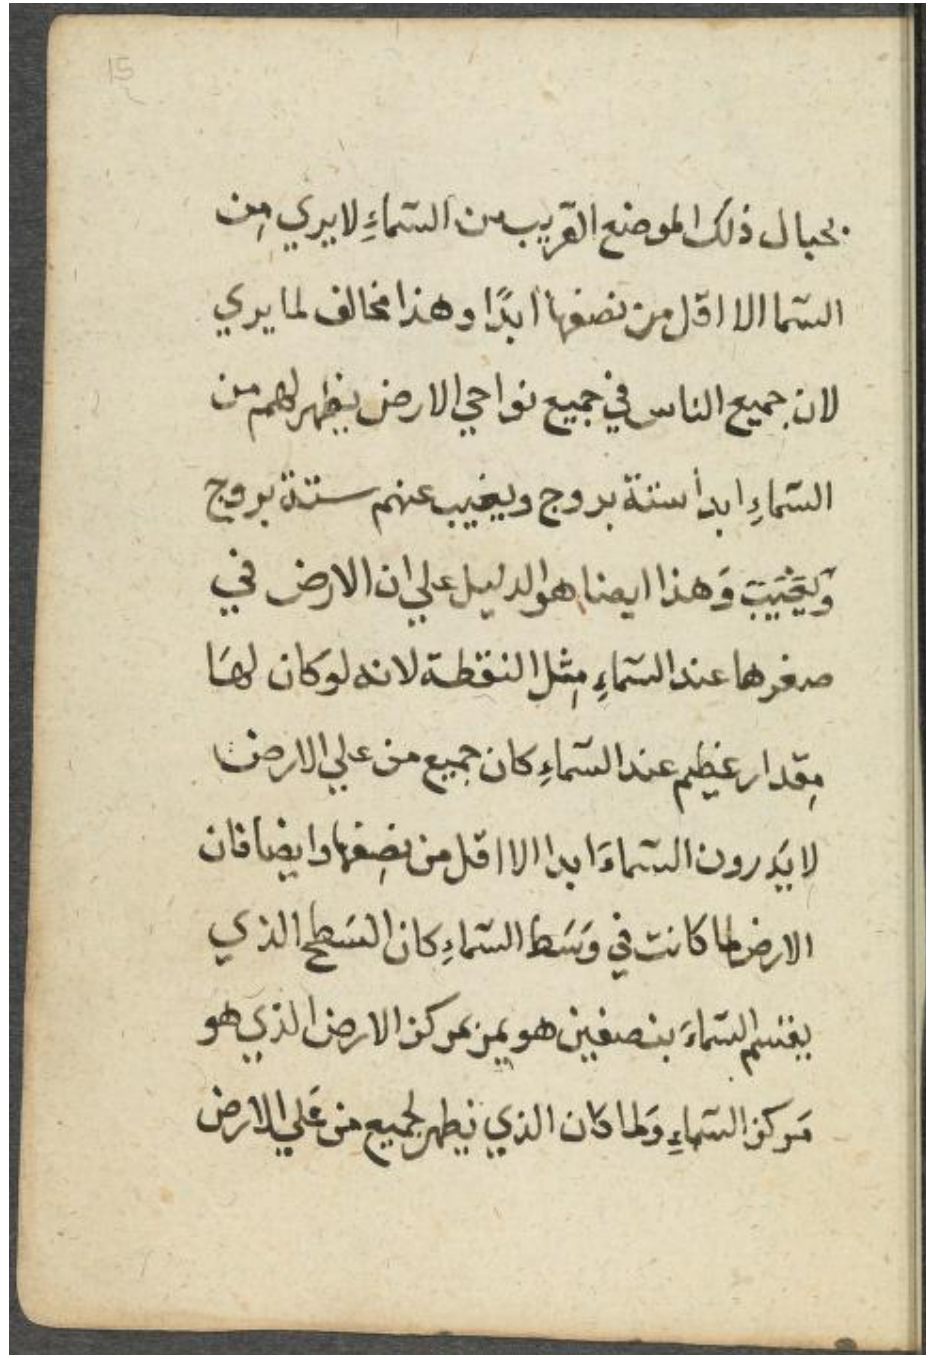 15
بحيال ذلك الموضع القريب من السّماءِ لا يري مِن
السّما الا اقل من نصفها ابدًا وهذا مخالف لما يري
لان جميع الناس في جميع نواحي الارض يظهر لهم من
السّماءِ ابدا ستة بروج ويغيب عنهم ستة بروج
وَهذا ايضا هو الدليل علي ان الارض في
صغرها عند السّماءِ مِثل النقطة لانه لو كان لهَا
مِقدار عَظيم عند السّماءِ كان جميع من علي الارض
لا يَرون السّماءَ ابدا الا اقل من نِصِفها وايضا فان
الارض لما كانت في وَسَط السّماءِ كان السَطح الذي
يقسم السّماءَ بنصفين هو يمر بمركز الارض الذي هو
مَركز السّماءِ وَلما كان الذي يظهر لجميع من عَلي الارض